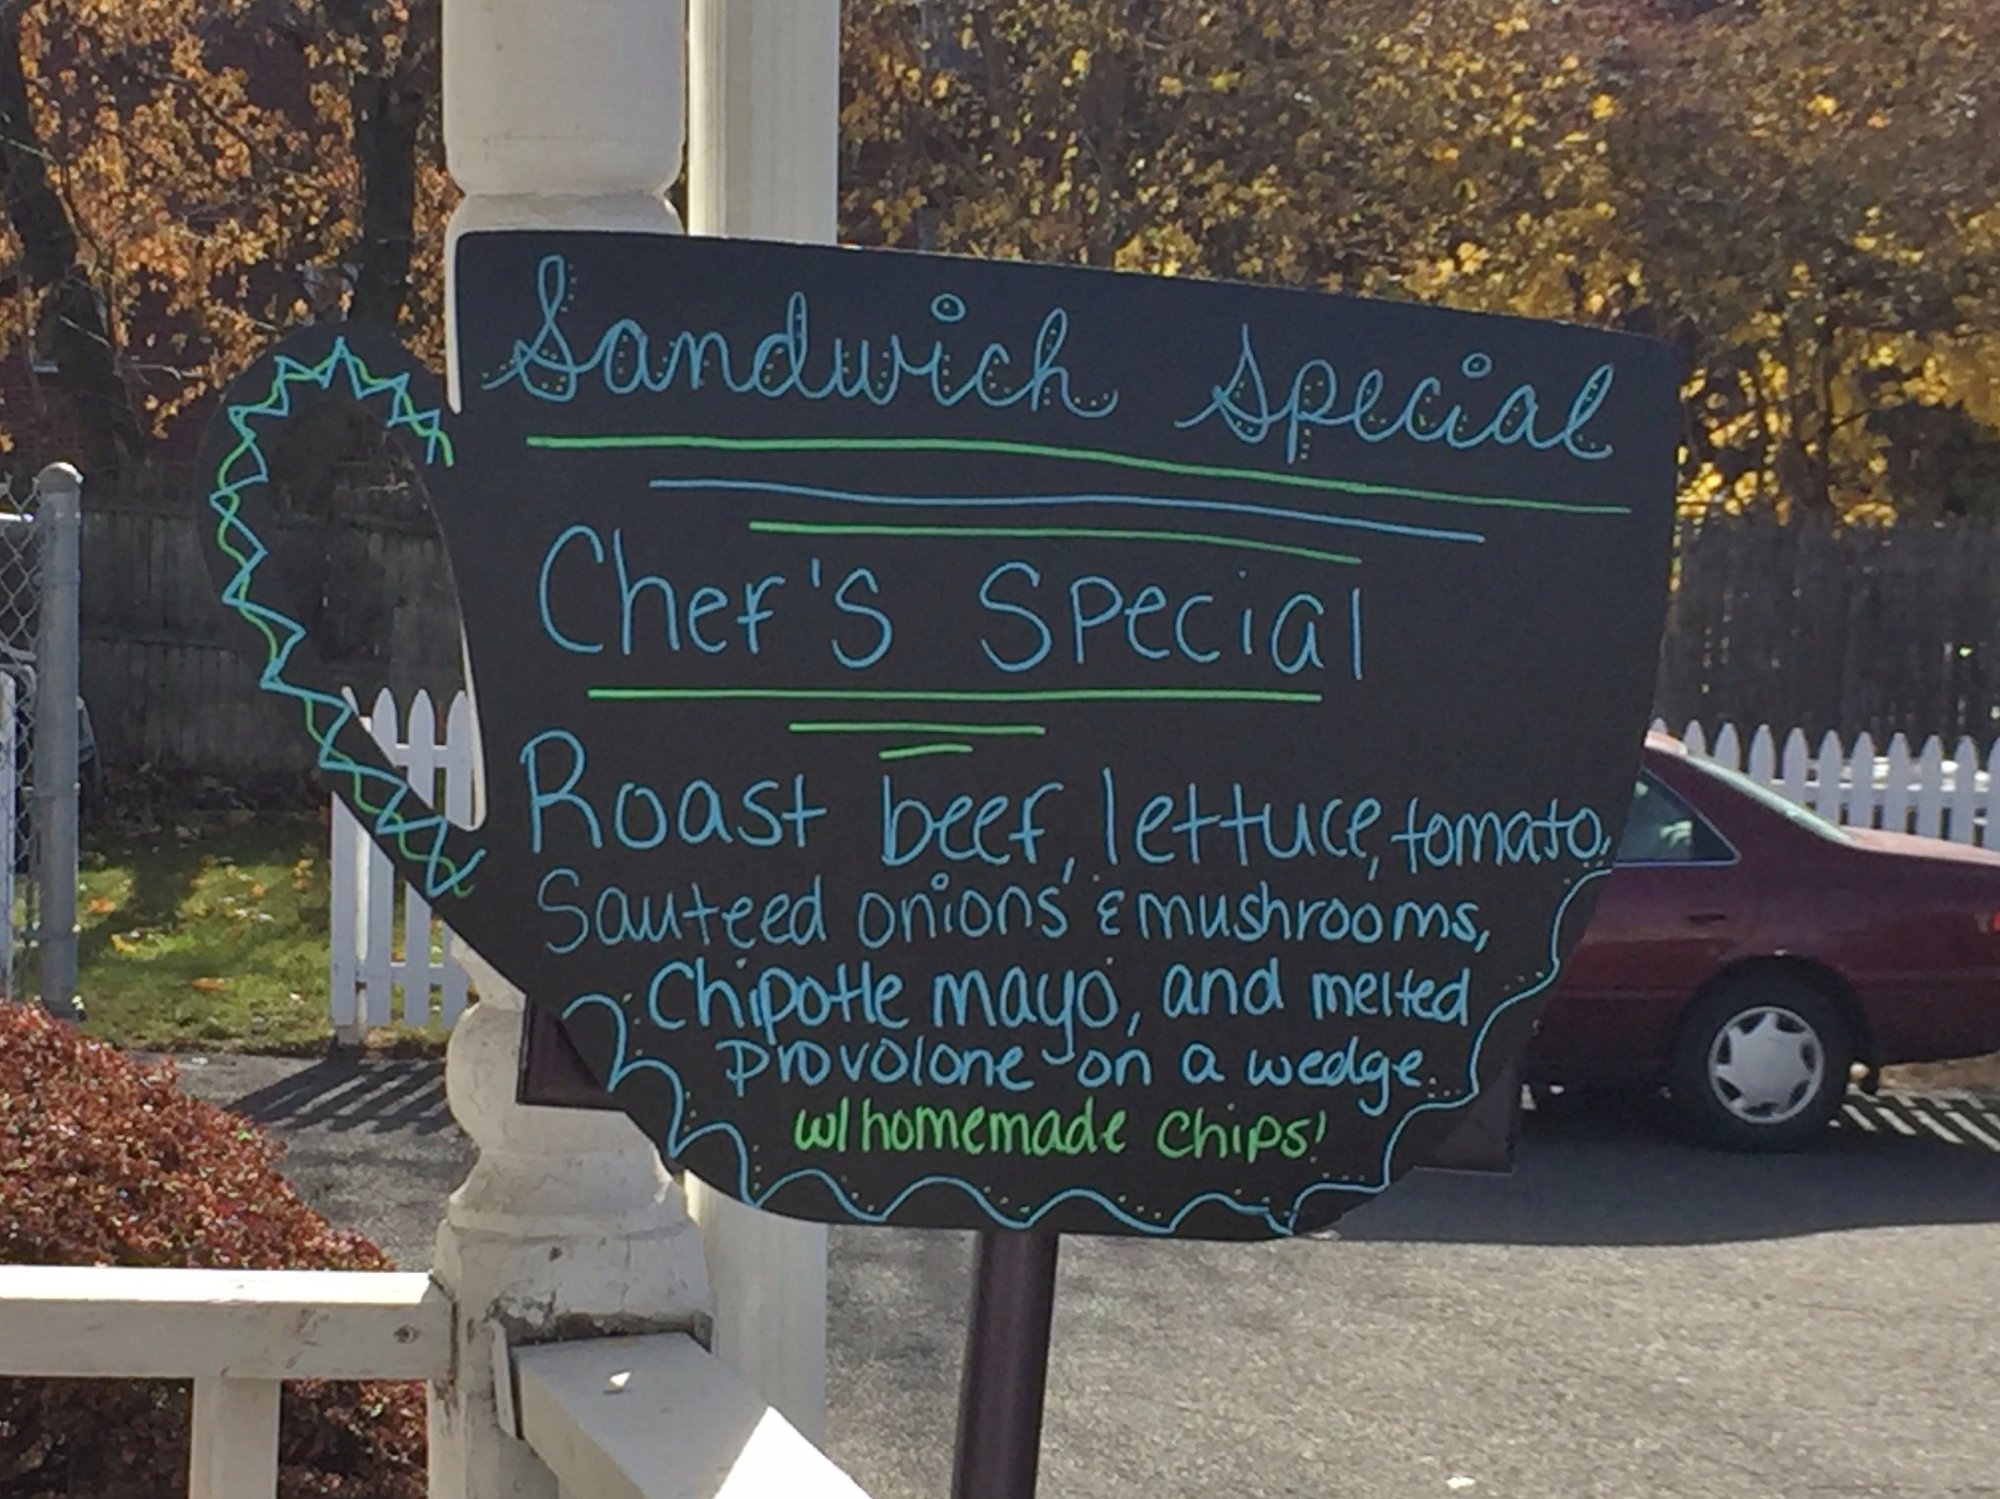 Sandwich Special
Chef's Special
Roast beef, lettuce, tomato,
Sauteed onions & mushrooms,
Chipotle mayo, and melted
provolone on a wedge
w/ homemade chips!